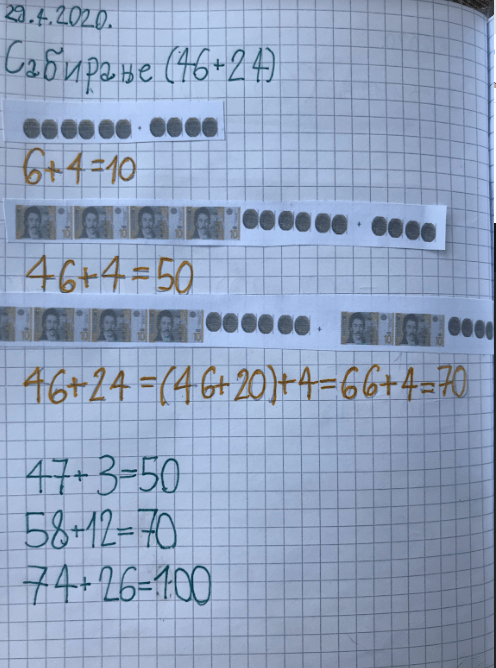 29.4.2020.
Сабирање (46+24)
6+4=10
46+4=50
46+24=(46+20)+4=66+4=70
47+3=50
58+12=70
74+26=100